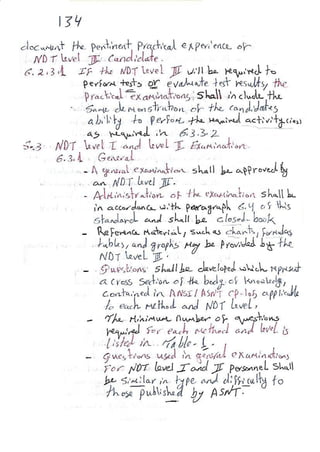 134
document the pentinent practical experience of
NDT Level III Candidate.
6.2.3.1 IF the NDT Level III will be required to
perform tests or evaluate test results, the
practical examinations, shall include the
Same demonstration of the candidates
ability to perform the required activity(ies)
as required in 6.3.3.2
6.3 NDT level I and level II Examination.
6.3.1 General
- A general examination shall be approved by
an NDT level III.
- Administration of the examination shall be
in accordance with paragraph 6.4 of this
standard and shall be closed-book
- Reference Material, such as charts, formulas
tables, and graphs May be Provided by the
NDT level III.
- Questions shall be developed which represent
a cross section of the body of knowledg,
contained in ANSI/ASNT CP-105 applicable
to each method and NDT level.
- The Minimum number of questions
required for each Method and level is
listed in Table-1.
- questions used in general examinations
For NDT level I and II personnel shall
be similar in type and difficulty to
those published by ASNT.